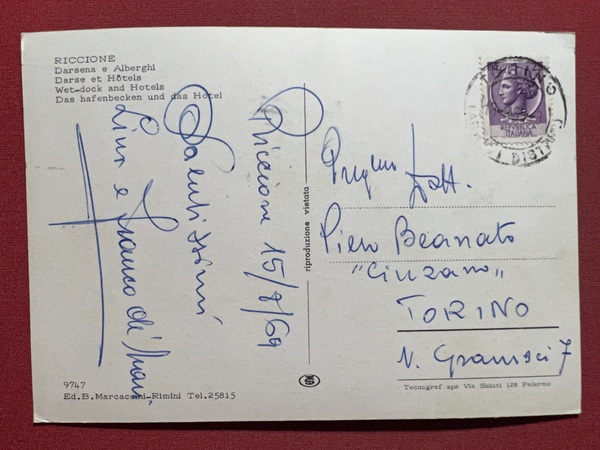 RICCIONE
Darsena e Alberghi
Darse et Hôtels
Wet-dock and Hotels
Das hafenbecken und das Hotel
Riccione 15/7/69
Salutissimi
Lina e Franco
riproduzione vietata
POSTE
REPVBBLICA
ITALIANA
Dott.
Piero Beanato
"Cinzano"
TORINO
V. Gramsci 7
9747
Ed.B. Marcaccini-Rimini Tel.25815
Tecnograf spa Via Goiuti 128 Palermo